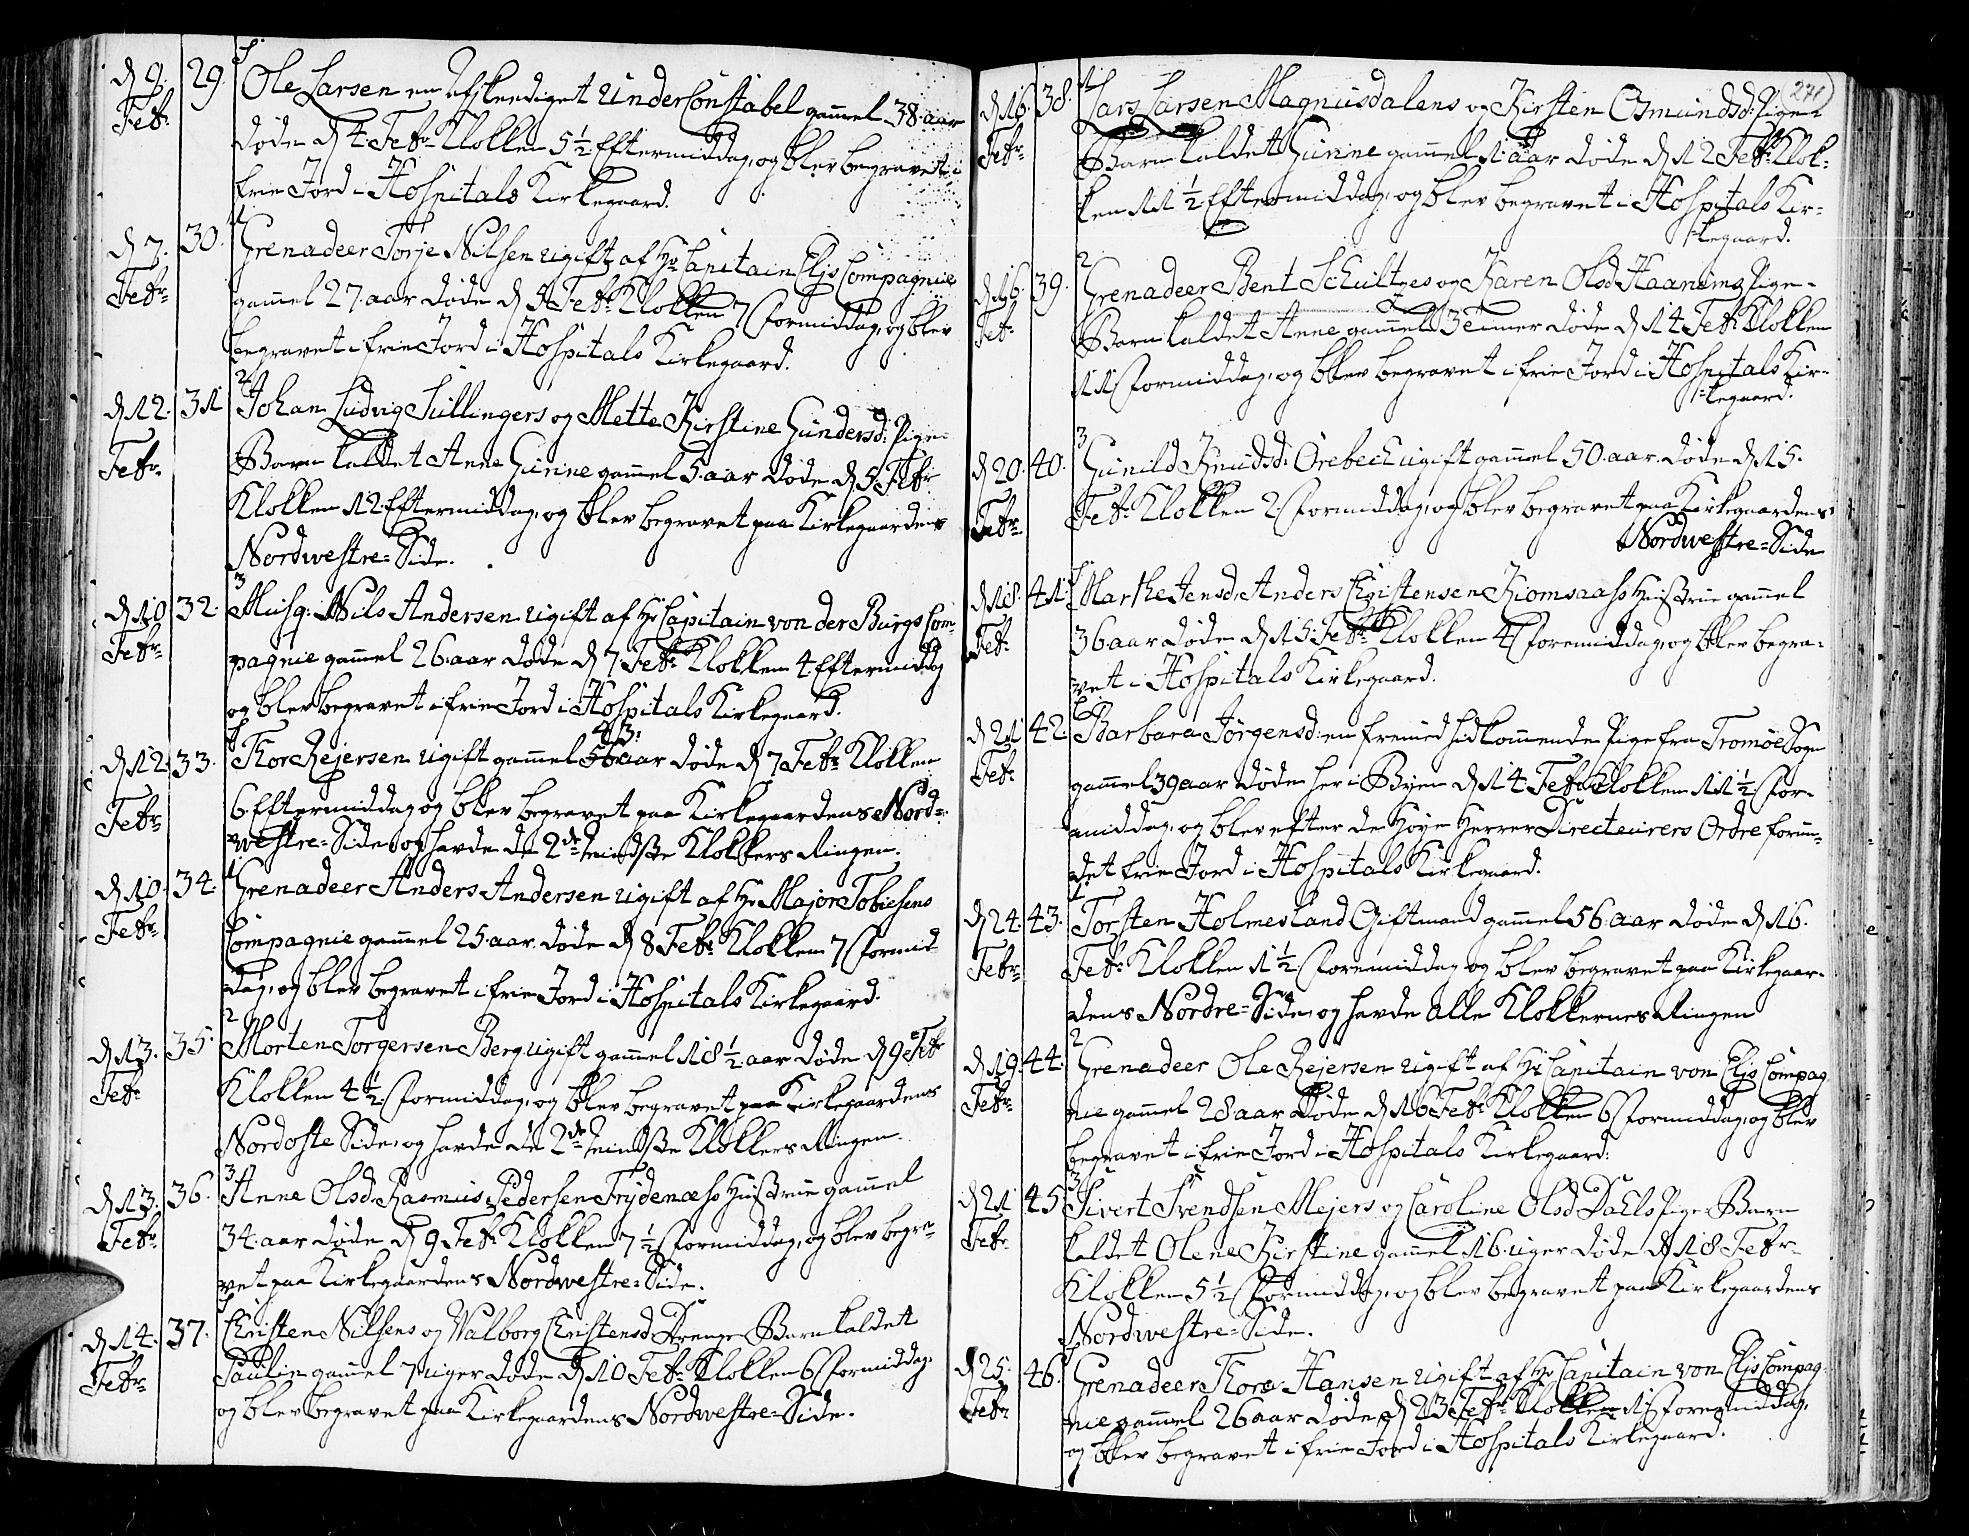 d 9. 29. Ole Larsen en Afskeediget Under Constabel gammel 38 aar
Febr: døde d 4 Febr: Klokken 5 1/2 Eftermiddag, og blev begravet i
frie Jord i Hospitals Kirkegaard.
1
d 7. 30. Grenadeer Torje Nilsen ugift af Hr Capitain Eljs Compagnie
Febr: gammel 27 aar døde d 5 Febr: Klokken 7 Formiddag, og blev
begravet i frie Jord i Hospitals Kirkegaard.
2
d 12. 31 Johan Ludvig Süllingers og Mette Kirstine Gundersd: Pige-
Febr: Barn kaldet Anne Gurine gammel 5 aar døde d 5 Febr:
Klokken 12 Eftermiddag, og blev begravet paa Kirkegaardens
Nordwestre=Side.
3
d 10 32. Musq: Nils Andersen ugift af Hr Capitain von der Burgs Com-
Febr: pagnie gammel 26 aar døde d 7 Febr: Klokken 4 Eftermiddag
og blev begravet i frie Jord i Hospitals Kirkegaard.
43:
d 12 33. Thor Rejersen ugift gammel 56 aar døde d 7 Febr: Klokken
Febr: 6 Eftermiddag og blev begravet paa Kirkegaardens Nord=
westre=Side, og havde de 2de mindste Klokkers Ringen.
1
d 10 34. Grenadeer Anders Andersen ugift af Hr Major Tobiesens
Febr: Compagnie gammel 25 aar døde d 8 Febr: Klokken 7 Formid
dag, og blev begravet i frie Jord i Hospitals Kirkegaard.
2
d 13. 35. Morten Torgersen Berg ugift gammel 18 1/2 aar døde d 9 Febr
Febr Klokken 4 1/2 Formiddag, og blev begravet paa Kirkegaardens
Nordoste Side, og havde de 2de mindste Klokkers Ringen.
3
d 13. 36. Anne Olsd: Rasmus Pedersen Frydenæss Huustrue gammel
Febr: 34 aar døde d 9 Febr: Klokken 7 1/2 Formiddag, og blev begra-
vet paa Kirkegaardens Nordwestre=Side.
d 14. 37. Christen Nilsens og Valborg Christensd Drenge Barn kaldet
Febr: Paulin gammel 7 uger døde d 10 Febr: Klokken 6 Formiddag,
og blev begravet paa Kirkegaardens Nordwestre=Side.
271
d 16. 38. Lars Larsen Magnusdalens og Kirsten Osmundsd: Pige-
Febr: Barn kaldet Gunne gammel 1 aar døde d 12 Febr: Klok-
ken 11 1/2 Eftermiddag, og blev begravet i Hospitals Kir-
=kegaard.
2
d 16. 39. Grenadeer Bent Schultzes og Karen Olsd Haaning Pige-
Febr: Barn kaldet Anne gammel 3 timer døde d 14 Febr: Klokken
11 Formiddag, og blev begravet i frie Jord i Hospitals Kir-
=kegaard.
3
d 20. 40. Gunild Knudsd: Örebech ugift gammel 50 aar døde d 15.
Febr: Febr: Klokken 2 Formiddag, og blev begravet paa Kirkegaardens
Nordwestre=Side
d 18. 41. Marthe Jensd: Anders Christensen Kiomsaass Huustrue gammel
Febr: 36 aar døde d 15 Febr: Klokken 4 Foremiddag, og blev begra-
vet i Hospitals Kirkegaard.
d 21 42. Barbara Jörgensd: en fremmed hidkommende Pige fra Tromöe Sogn
Febr: gammel 39 aar døde her i Byen d 14 Febr: Klokken 11 1/2 For-
middag, og blev efter de Høye Herrer Directeurers Ordre forun-
det frie Jord i Hospitals Kirkegaard.
1
d 24. 43. Torsten Holmesland Giftmand gammel 56 aar døde d 16.
Febr: Febr: Klokken 1 1/2 Foremiddag og blev begravet paa Kirkegaar-
dens Nordre=Side, og havde alle Klokkernes Ringen
2
d 19. 44. Grenadeer Ole Rejersen ugift af Hr Capitain von Eljs Compag
Febr: nie gammel 28 aar døde d 16 Febr: Klokken 6 Formiddag, og blev
begravet i frie Jord i Hospitals Kirkegaard.
3
d 21 45. Sivert Svendsen Mejers og Caroline Olsd Dahls Pige Barn
Febr: kaldet Olene Kirstine gammel 16 uger døde d 18 Febr:
Klokken 5 1/2 Formiddag, og blev begravet paa Kirkegaardens
Nordwestre=Side.
d 25. 46. Grenadeer Thore Hansen ugift af Hr Capitain von Eljs Compag
Febr: nie gammel 26 aar døde d 23 Febr: Klokken 11 Foremiddag,
og blev begravet i frie Jord i Hospitals Kirkegaard.